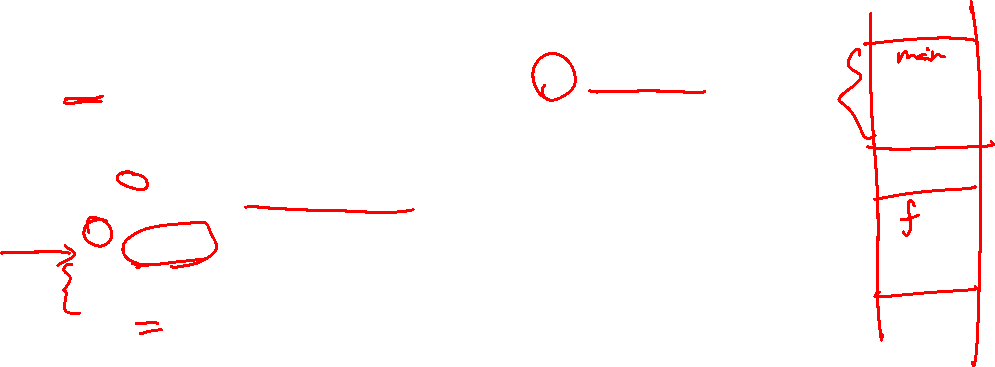 main
f